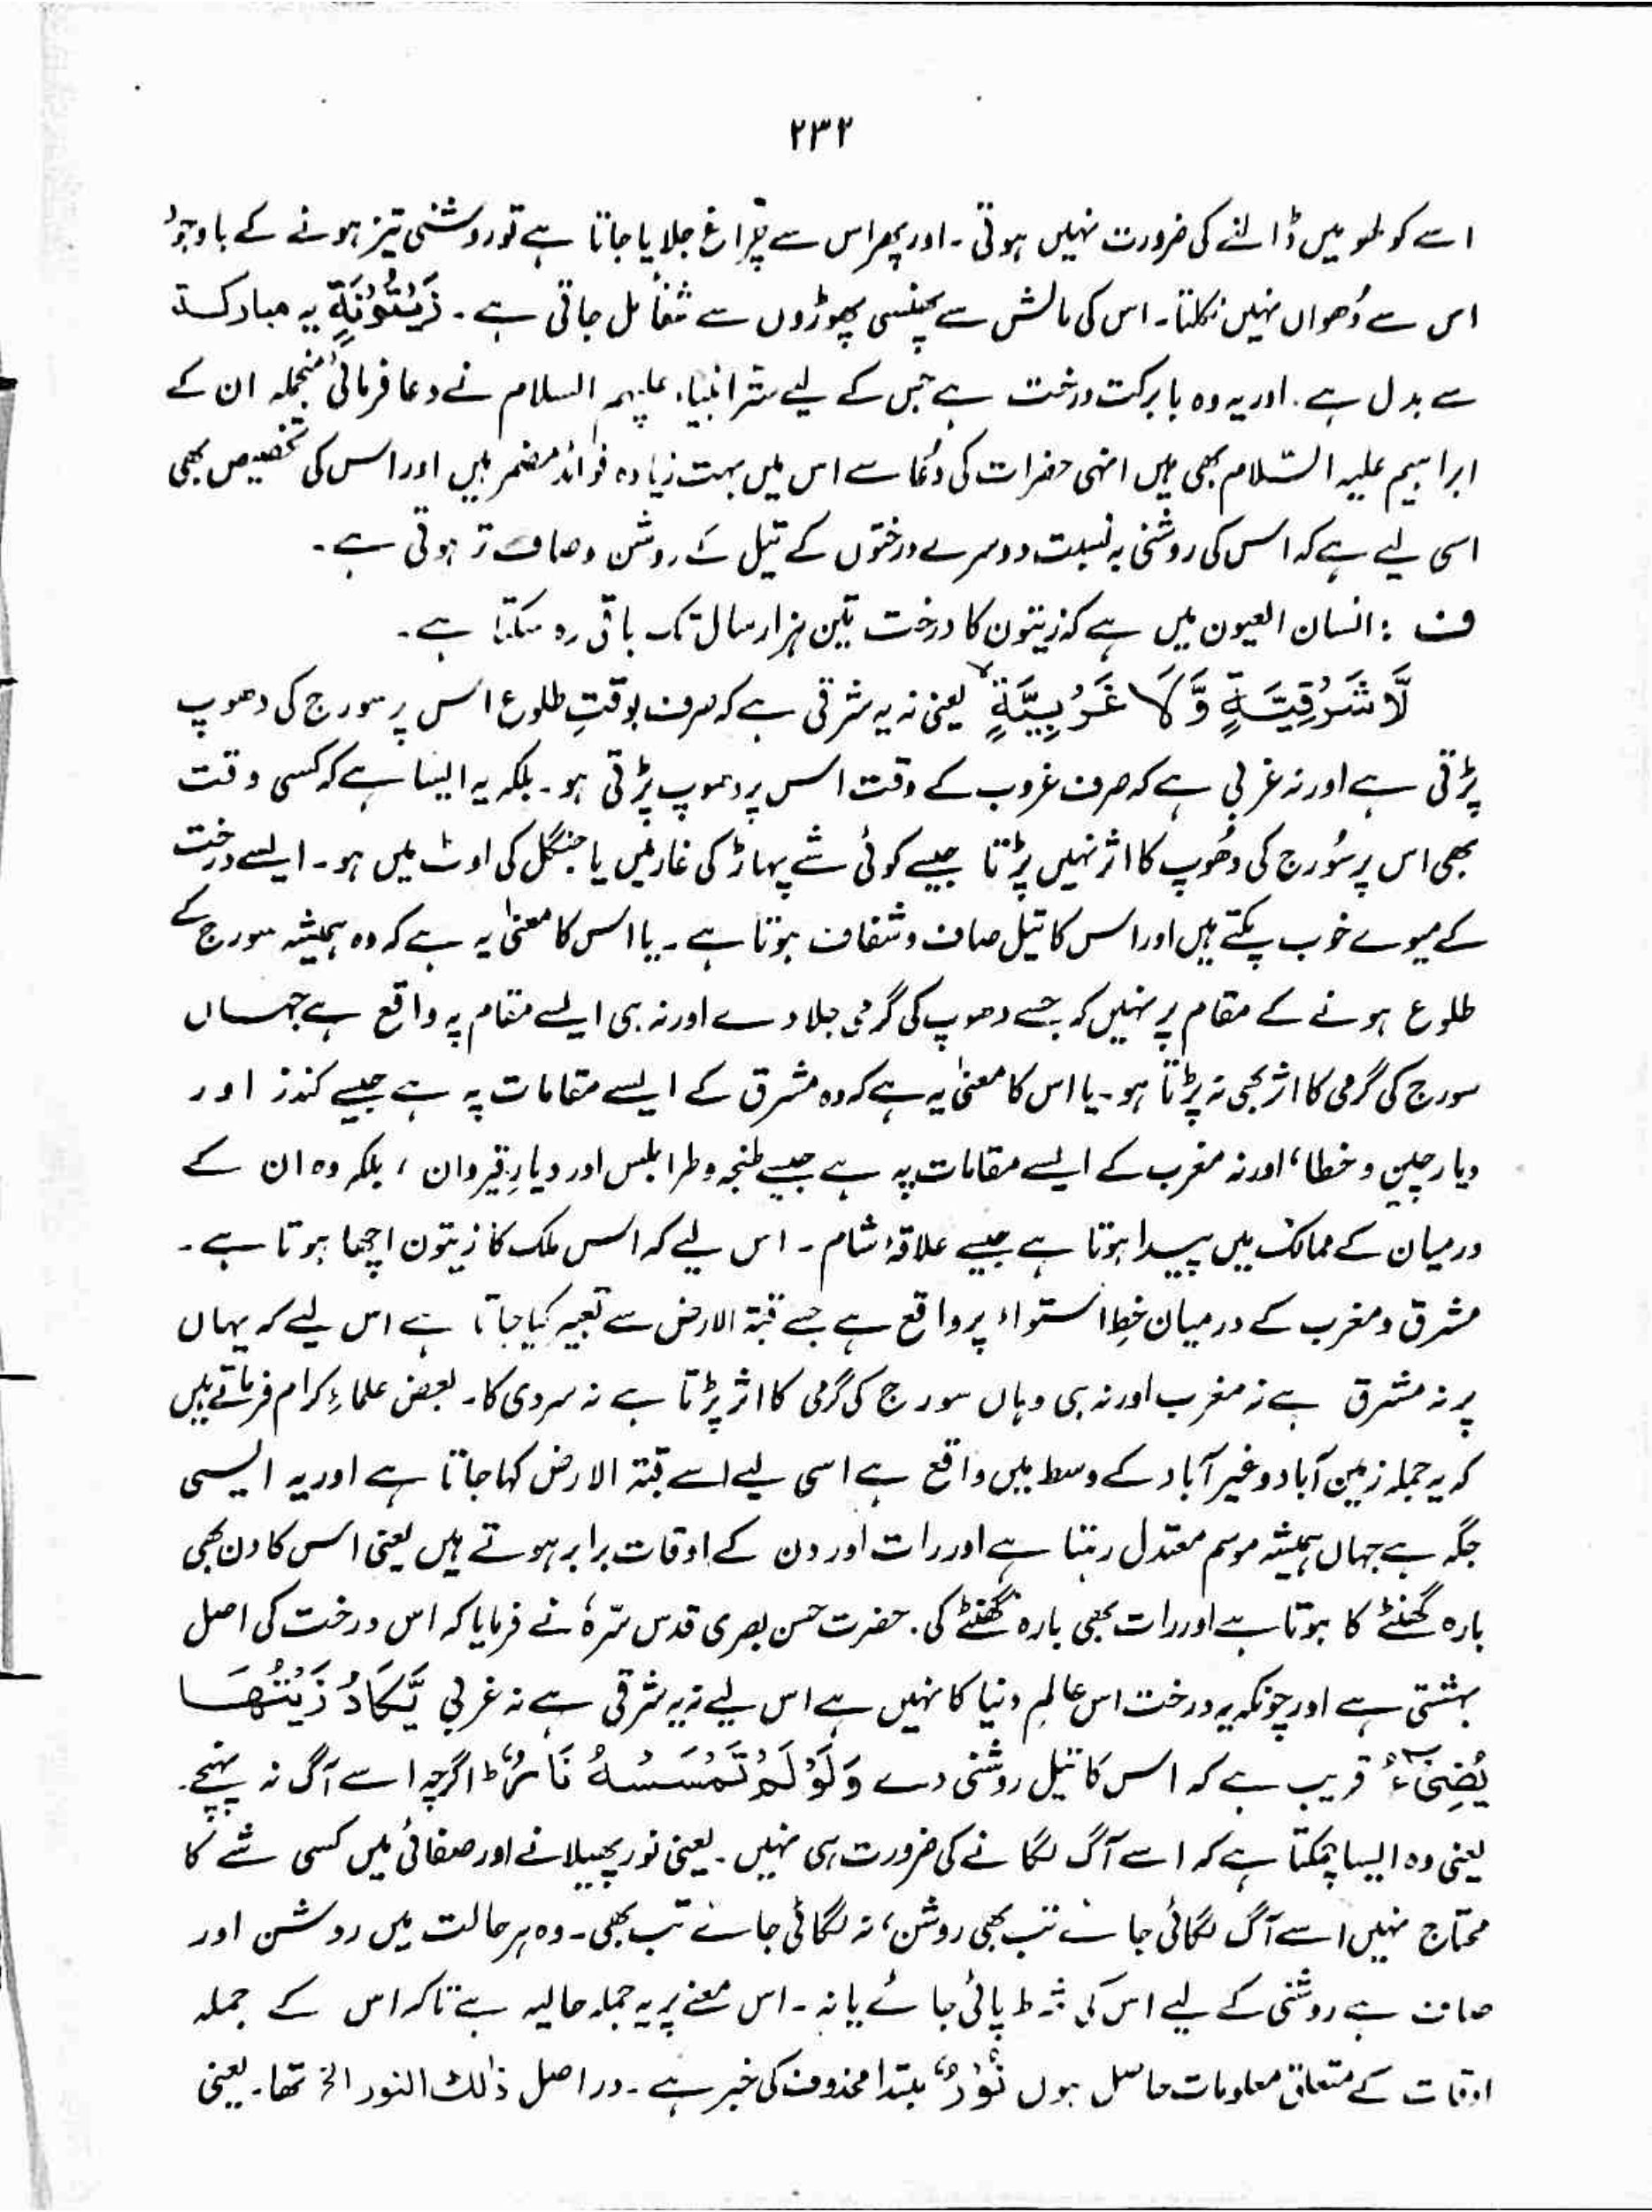 ۲۳۲
اسے کولھو میں ڈالنے کی ضرورت نہیں ہوتی۔ اور پھر اس سے چراغ جلایا جاتا ہے تو روشنی تیز ہونے کے باوجود
اس سے دُھواں نہیں نکلتا۔ اس کی مالش سے پھنسی پھوڑوں سے شفا مل جاتی ہے۔ زَيْتُوْنَةٍ یہ مبارکۃ
سے بدل ہے۔ اور یہ وہ بابرکت درخت ہے جس کے لیے ستر انبیاء علیہم السلام نے دعا فرمائی منجملہ ان کے
ابراہیم علیہ السّلام بھی ہیں انہی حضرات کی دُعا سے اس میں بہت زیادہ فوائد مضمر ہیں اور اس کی تخصیص بھی
اسی لیے ہے کہ اس کی روشنی بہ نسبت دوسرے درختوں کے تیل کے روشن و صاف تر ہوتی ہے۔
ف : انسان العیون میں ہے کہ زیتون کا درخت تین ہزار سال تک باقی رہ سکتا ہے۔
لَّا شَرْقِيَّةٍ وَّلَا غَرْبِيَّةٍ ۙ یعنی نہ یہ شرقی ہے کہ صرف بوقتِ طلوع اس پر سورج کی دھوپ
پڑتی ہے اور نہ غربی ہے کہ صرف غروب کے وقت اس پر دھوپ پڑتی ہو۔ بلکہ یہ ایسا ہے کہ کسی وقت
بھی اس پر سُورج کی دُھوپ کا اثر نہیں پڑتا جیسے کوئی شے پہاڑ کی غار میں یا جنگل کی اوٹ میں ہو۔ ایسے درخت
کے میوے خوب پکتے ہیں اور اس کا تیل صاف و شفاف ہوتا ہے۔ یا اس کا معنیٰ یہ ہے کہ وہ ہمیشہ سورج کے
طلوع ہونے کے مقام پر نہیں کہ جسے دھوپ کی گرمی جلا دے اور نہ ہی ایسے مقام پہ واقع ہے جہاں
سورج کی گرمی کا اثر بھی نہ پڑتا ہو۔ یا اس کا معنیٰ یہ ہے کہ وہ مشرق کے ایسے مقامات پہ ہے جیسے کندز اور
دیار چین و خطا، اور نہ مغرب کے ایسے مقامات پہ ہے جیسے طنجہ و طرابلس اور دیارِ قیروان ، بلکہ وہ ان کے
درمیان کے ممالک میں پیدا ہوتا ہے جیسے علاقۂ شام۔ اس لیے کہ اس ملک کا زیتون اچھا ہوتا ہے۔
مشرق و مغرب کے درمیان خطِ استواء پر واقع ہے جسے قبۃ الارض سے تعبیر کیا جاتا ہے اس لیے کہ یہاں
پر نہ مشرق ہے نہ مغرب اور نہ ہی وہاں سورج کی گرمی کا اثر پڑتا ہے نہ سردی کا۔ بعض علماءِ کرام فرماتے ہیں
کہ یہ جملہ زمین آباد و غیر آباد کے وسط میں واقع ہے اسی لیے اسے قبۃ الارض کہا جاتا ہے اور یہ ایسی
جگہ ہے جہاں ہمیشہ موسم معتدل رہتا ہے اور رات اور دن کے اوقات برابر ہوتے ہیں یعنی اس کا دن بھی
بارہ گھنٹے کا ہوتا ہے اور رات بھی بارہ گھنٹے کی۔ حضرت حسن بصری قدس سّرہٗ نے فرمایا کہ اس درخت کی اصل
بہشتی ہے اور چونکہ یہ درخت اس عالمِ دنیا کا نہیں ہے اس لیے نہ یہ شرقی ہے نہ غربی يَّكَادُ زَيْتُهَا
يُضِیْٓءُ قریب ہے کہ اس کا تیل روشنی دے وَلَوْ لَمْ تَمْسَسْهُ نَارٌ ط اگرچہ اسے آگ نہ پہنچے۔
یعنی وہ ایسا چمکتا ہے کہ اسے آگ لگانے کی ضرورت ہی نہیں۔ یعنی نور پھیلانے اور صفائی میں کسی شے کا
محتاج نہیں اسے آگ لگائی جائے تب بھی روشن، نہ لگائی جائے تب بھی۔ وہ ہر حالت میں روشن اور
صاف ہے روشنی کے لیے اس کی شرط پائی جائے یا نہ۔ اس معنے پر یہ جملہ حالیہ ہے تاکہ اس کے جملہ
اوقات کے متعلق معلومات حاصل ہوں نُوْرٌ مبتدا محذوف کی خبر ہے۔ دراصل ذٰلک النور الخ تھا۔ یعنی